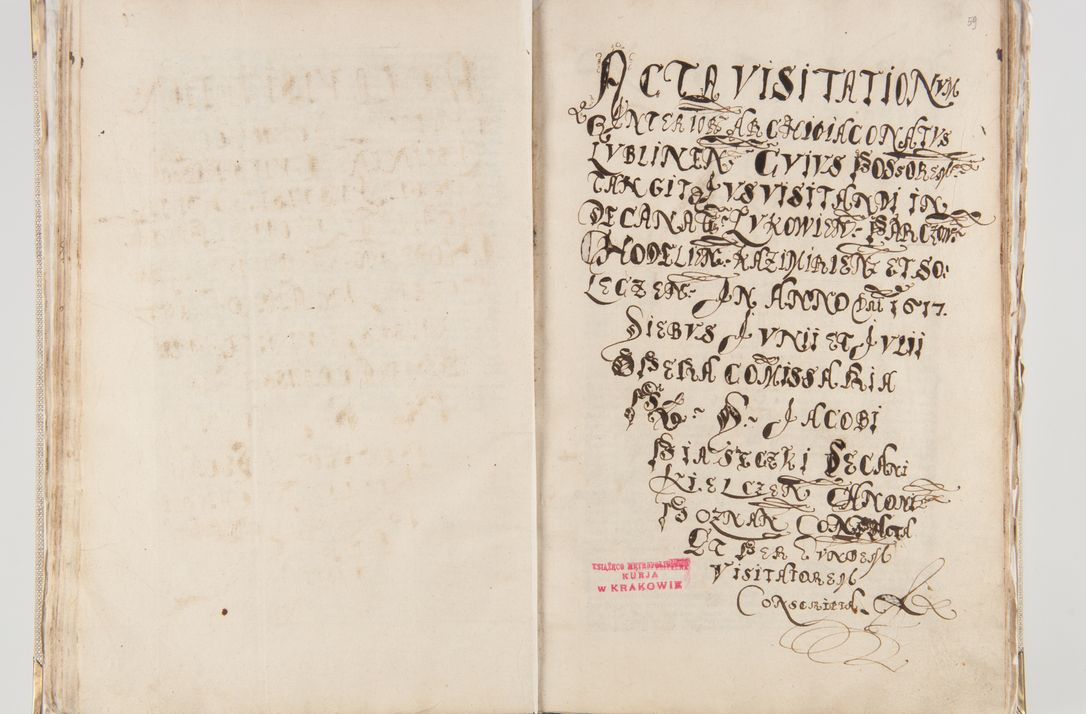 59
ACTA VISITATIONVM
EXTERIOR ARCHIDIACONATVS
LVBLINEN CVIVS POSSOREM
TANGIT IVS VISITANDI IN
DECANAT LVKOWIEN PARCZOW
CHODELIEN KAZIMIRIEN ET SO:
LECZEN IN ANNO Dni 1617.
DIEBVS IVNII ET IVLII
OPERA COMISSARIA
R. D. IACOBI
PIASECZKI DECANI
KIELCZEN CANONI
POZNAN CONFACTA
ET PER EVNDEM
VISITATOREM
CONSCRIPTA
KSIĄŻĘCO METROPOLITALNA
KURJA
W KRAKOWIE